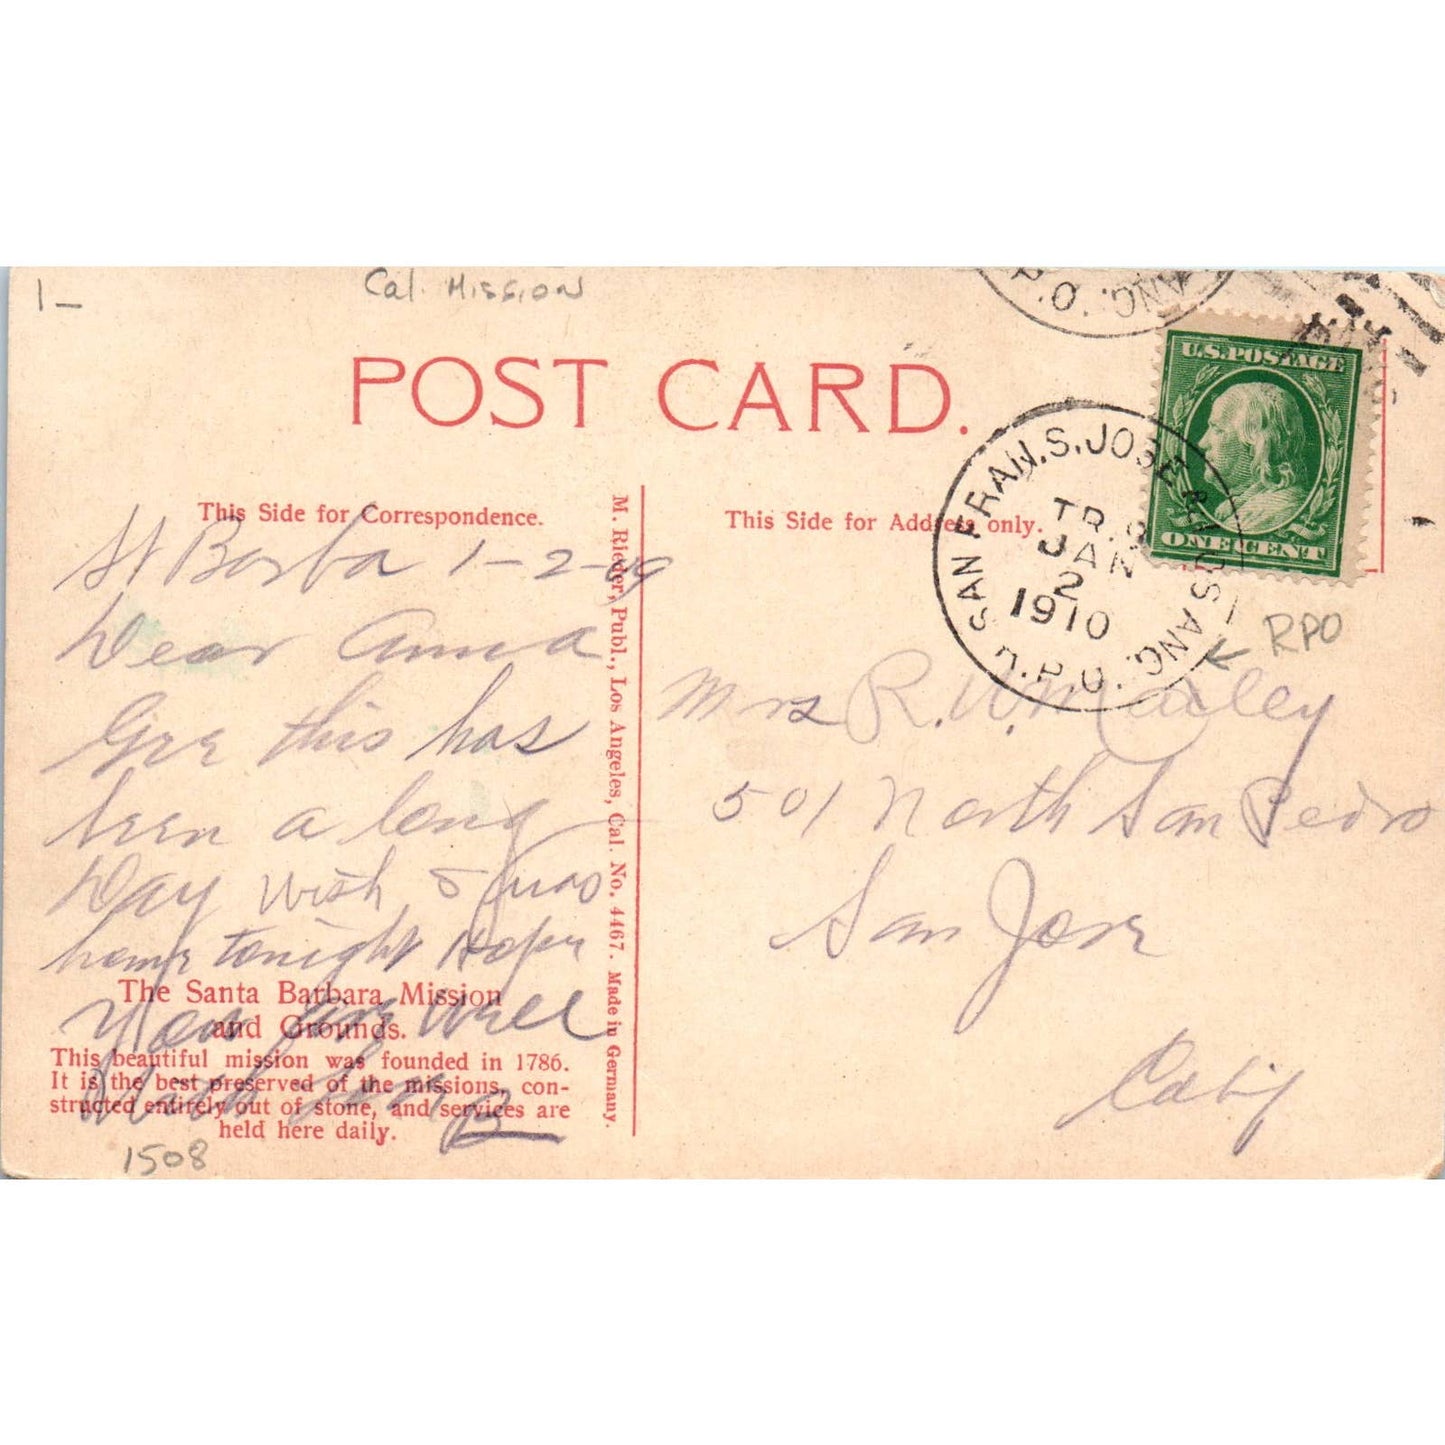 1-
Cal. Mission
POST CARD.
R.P.O. ANG.
U.S. POSTAGE
ONE CENT
SAN FRAN. S. JOSE & LOS ANG. R.P.O.
TR. 9
JAN
2
1910
RPO
This Side for Correspondence.
St Barba 1-2-09
Dear Anna
Gee this has
been a long
Day wish I was
home tonight Hope
You are well
B
The Santa Barbara Mission
and Grounds.
This beautiful mission was founded in 1786.
It is the best preserved of the missions, con-
structed entirely out of stone, and services are
held here daily.
1508
M. Rieder, Publ., Los Angeles, Cal. No. 4467. Made in Germany.
This Side for Address only.
Mrs R. W.
501 North San Pedro
San Jose
Calif